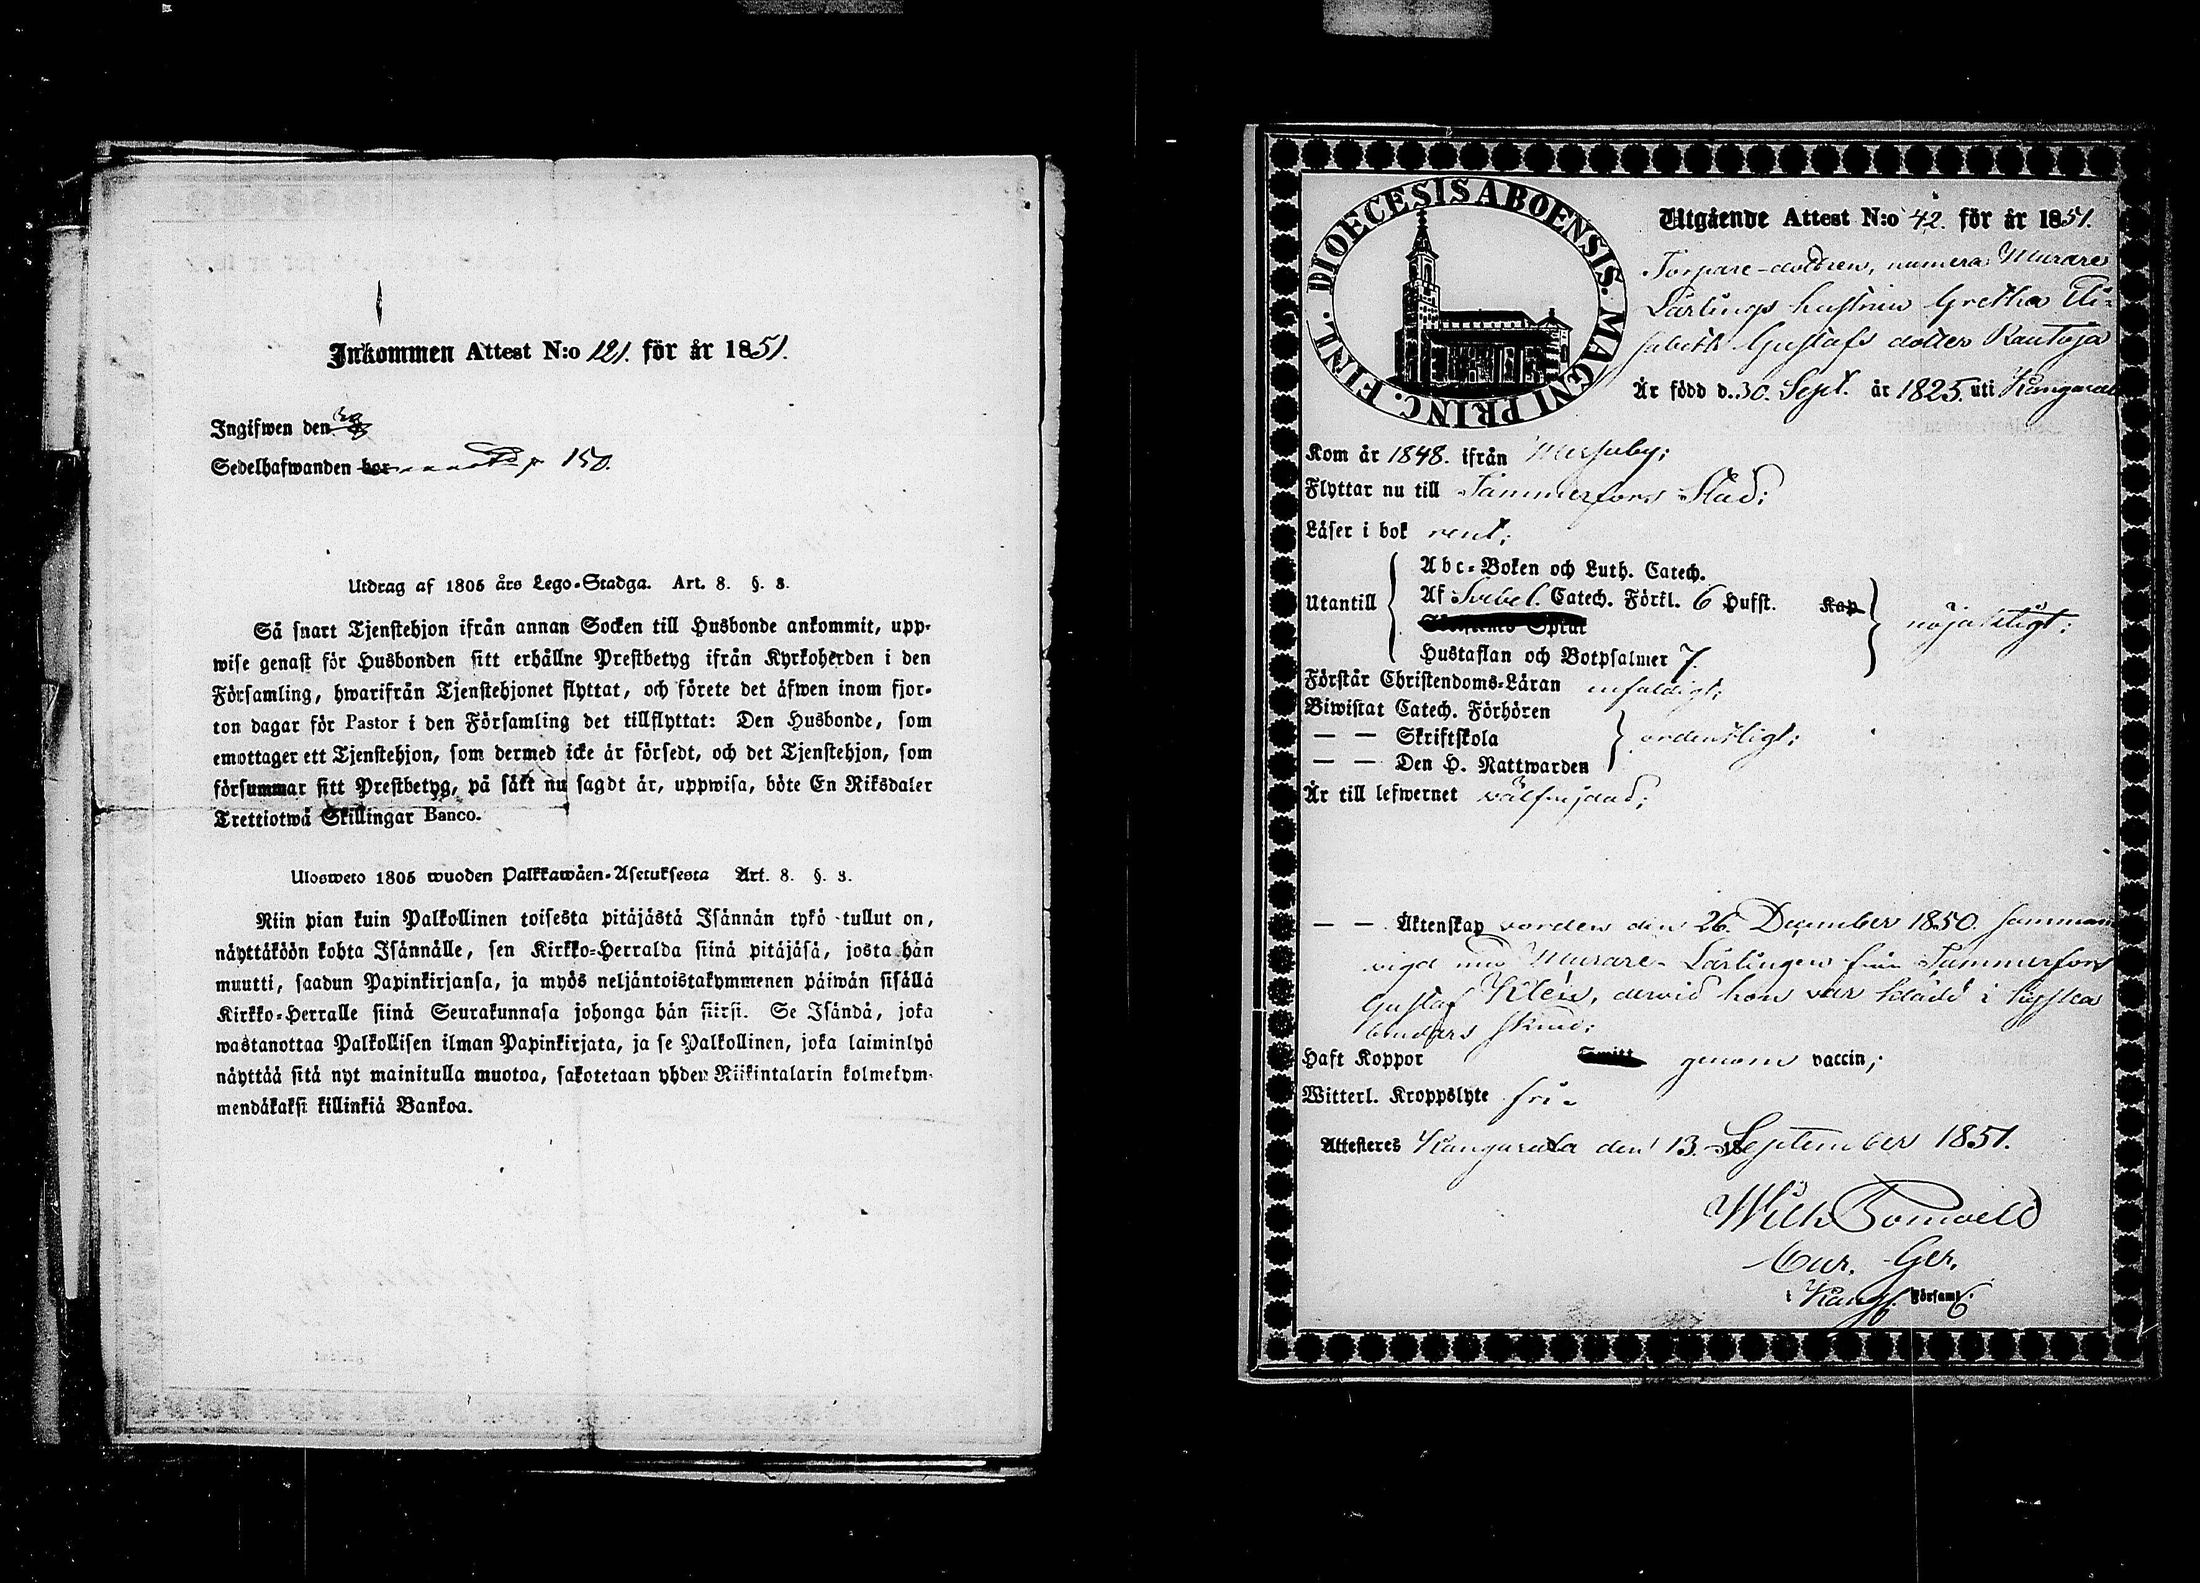 Inkommen Attest N:o 121. för år 1851.
Ingifwen den
Sedelhafwanden bor 150.
Utdrag af 1805 års Lego-Stadga. Art. 8. §. 3.
Så snart Tjenstehjon ifrån annan Socken till Husbonde ankommit, upp-
wise genast för Husbonden sitt erhållne Prestbetyg ifrån Kyrkoherden i den
Församling, hwarifrån Tjenstehjonet flyttat, och förete det äfwen inom fjor-
ton dagar för Pastor i den Församling det tillflyttat: Den Husbonde, som
emottager ett Tjenstehjon, som dermed icke är försedt, och det Tjenstehjon, som
försummar sitt Prestbetyg, på sätt nu sagdt är, uppwisa, böte En Riksdaler
Trettiotwå Skillingar Banco.
Ulosweto 1805 wuoden Palkkawäen-Asetuksesta Art. 8. §. 3.
Niin pian kuin Palkollinen toisesta pitäjästä Isännän tykö tullut on,
näyttäköön kohta Isännälle, sen Kirkko-Herralda siinä pitäjäsä, josta hän
muutti, saadun Papinkirjansa, ja myös neljäntoistakymmenen päiwän sisällä
Kirkko-Herralle siinä Seurakunnasa johonga hän siirsi. Se Isändä, joka
wastanottaa Palkollisen ilman Papinkirjata, ja se Palkollinen, joka laiminlyö
näyttää sitä nyt mainitulla muotoa, sakotetaan yhden Riikintalarin kolmekym-
mendäkaksi killinkiä Bankoa.
DIOECESIS ABOENSIS. MAGNI PRINC. FINL.
Utgående Attest N:o 42. för år 1851.
Torpare-dottren, numera Murare
Lärlings hustrun Gretha Eli-
sabeth Gustafs dotter Rautoja
Är född d. 30. Sept. år 1825. uti Kangasala
Kom år 1848. ifrån Messuby;
Flyttar nu till Tammerfors Stad;
Läser i bok rent;
Abc-Boken och Luth. Catech.
Utantill Af Svebel. Catech. Förkl. 6 Hufst. Kap nöjaktigt;
Språk
Hustaflan och Botpsalmer 7.
Förstår Christendoms-Läran enfaldigt;
Biwistat Catech. Förhören
— — Skriftskola ordentligt;
— — Den H. Nattwarden
Är till lefwernet välfrejdad;
— — Äktenskap vorden den 26. December 1850. samman-
vigd med Murare-Lärlingen från Tammerfors
Gustaf Klén, dervid hon var klädd i hyska
brudars skrud;
Haft Koppor genom vaccin;
Witterl. Kroppslyte fri.
Attesteres Kangasala den 13. September 1851.
Wilh
Cur. Ger.
i Kang. Församl.